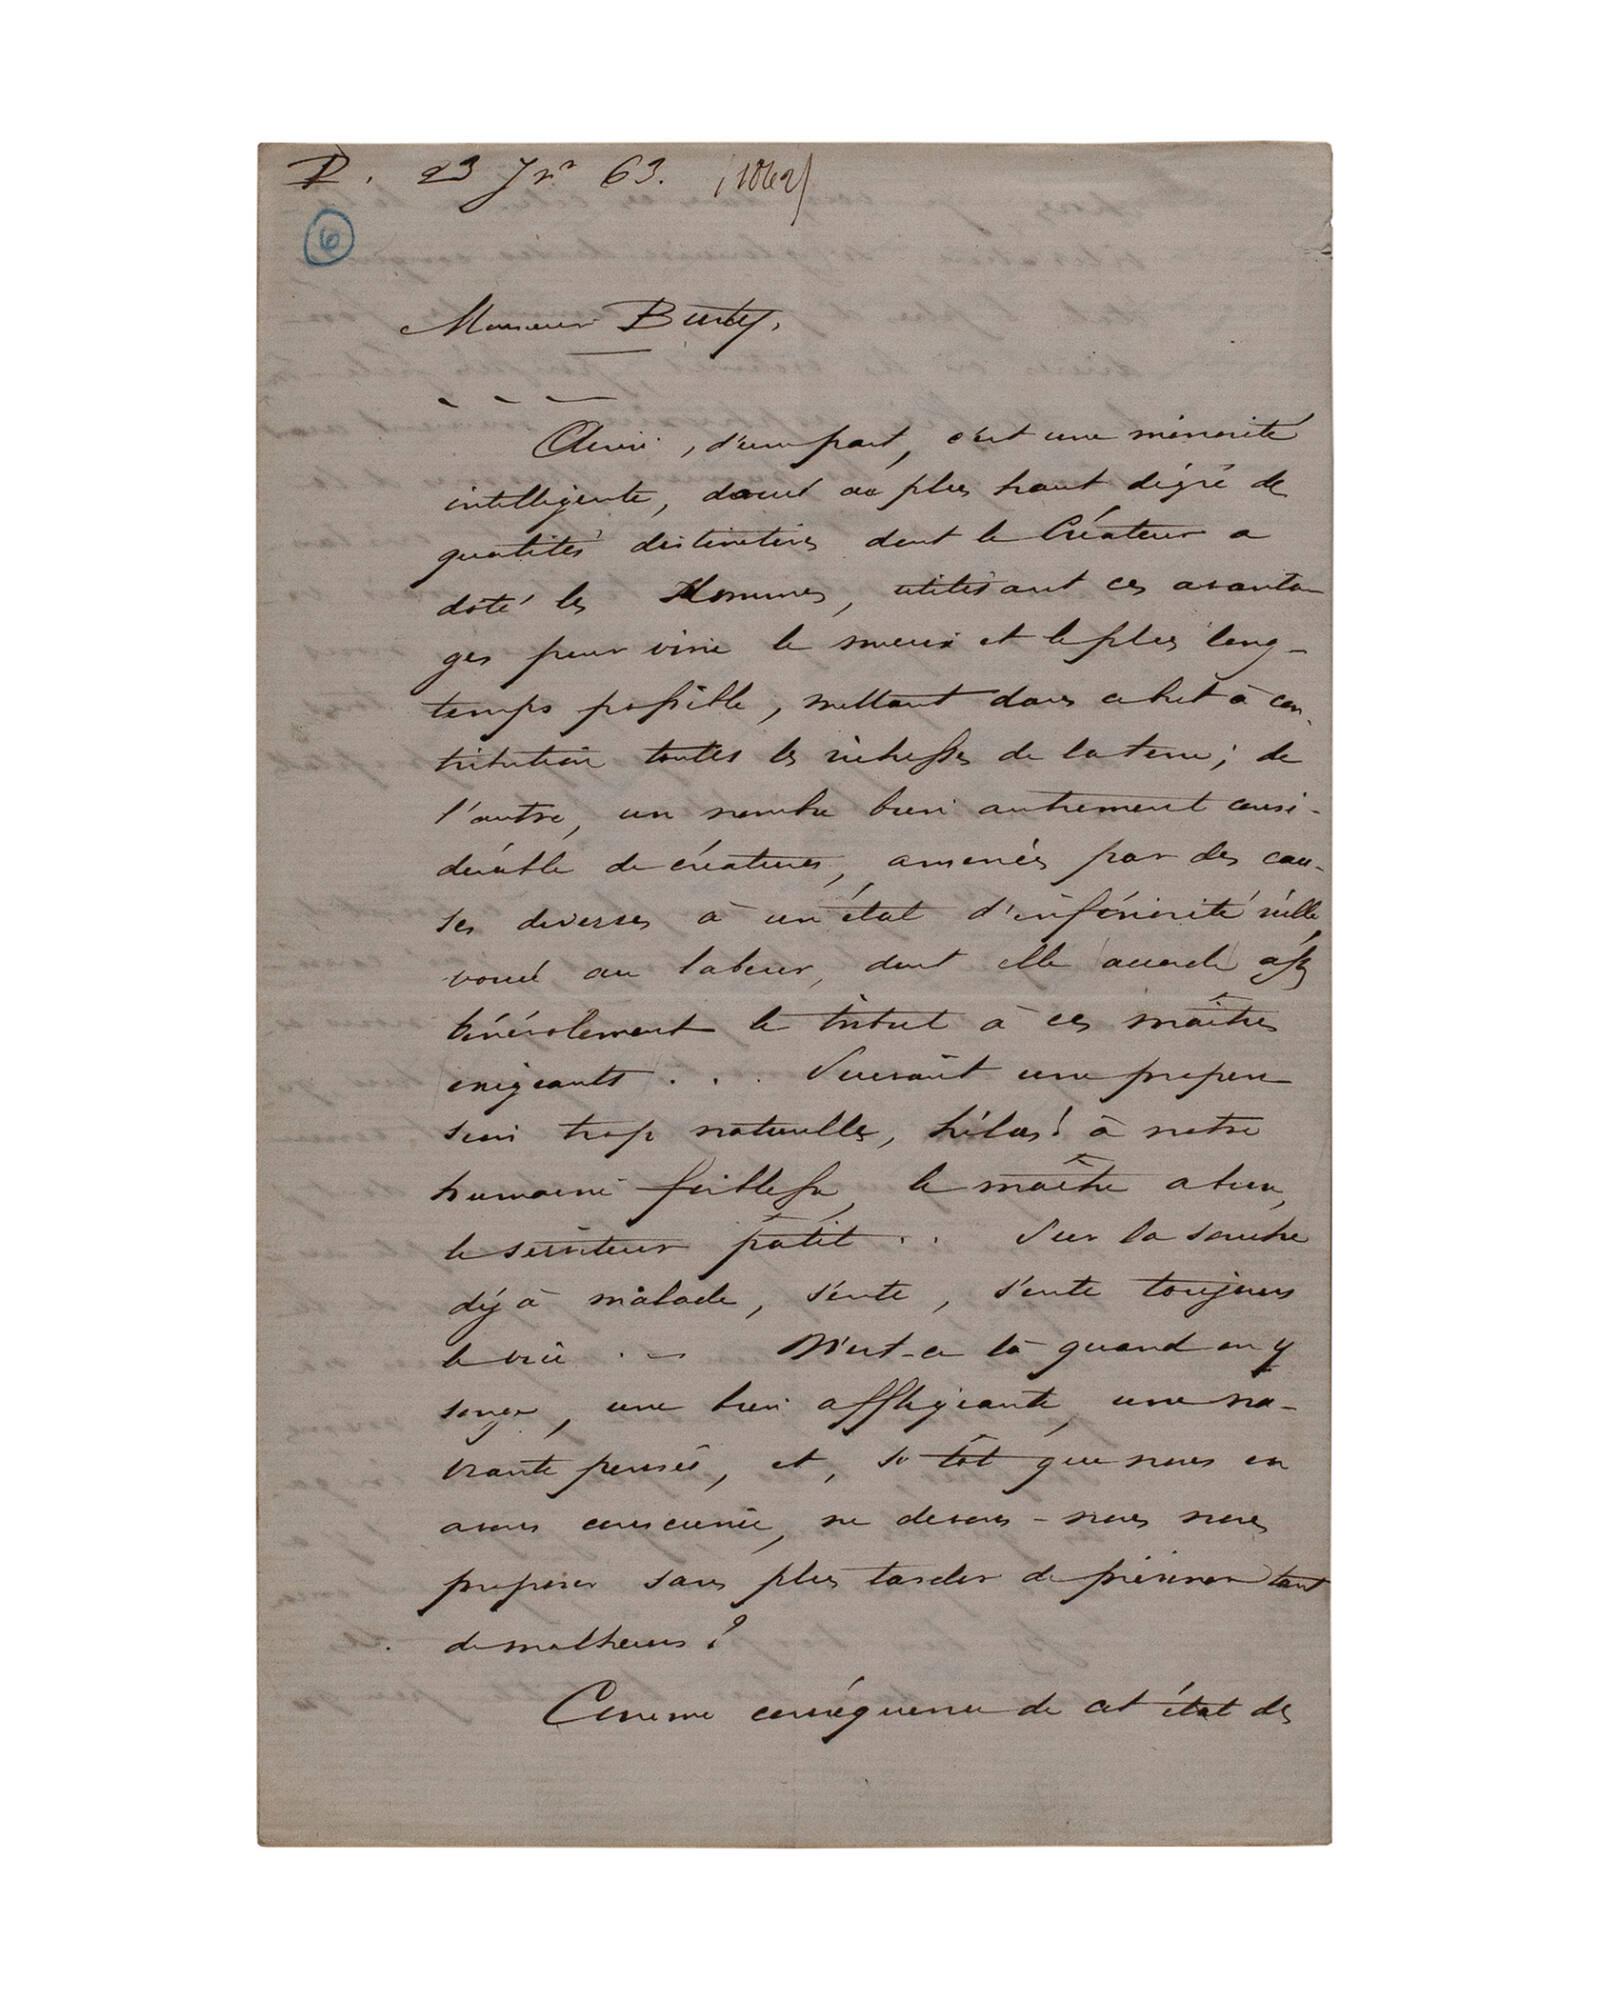 P. 23 Jr 63. (1862)
6
Monsieur Burty,
Ainsi, d'une part, c'est une minorité
intelligente, doué au plus haut dégré de
qualités distinctives dont le Créateur a
doté les Hommes, utilisant ces avanta-
ges pour vivre le mieux et le plus long-
temps possible, mettant dans ce but à con-
tribution toutes les richesses de la terre; de
l'autre, un nombre bien autrement consi-
dérable de créatures, amenées par des cau-
ses diverses à un état d'infériorité réelle
voué au labeur, dont elle accorde assez
bénévolement le tribut à ces maîtres
exigeants . . . Suivant une propen
sion trop naturelle, hélas! à notre
humaine faiblesse, le maître abuse,
le serviteur pâtit . . Sur la souche
déjà malade, s'ente, s'ente toujours
le vice . - N'est-ce là quand on y
songe, une bien affligeante, une na-
vrante pensée, et, si tôt que nous en
avons conscience, ne devons-nous nous
proposer sans plus tarder de prévenir tant
de malheurs?
Comme conséquence de cet état des